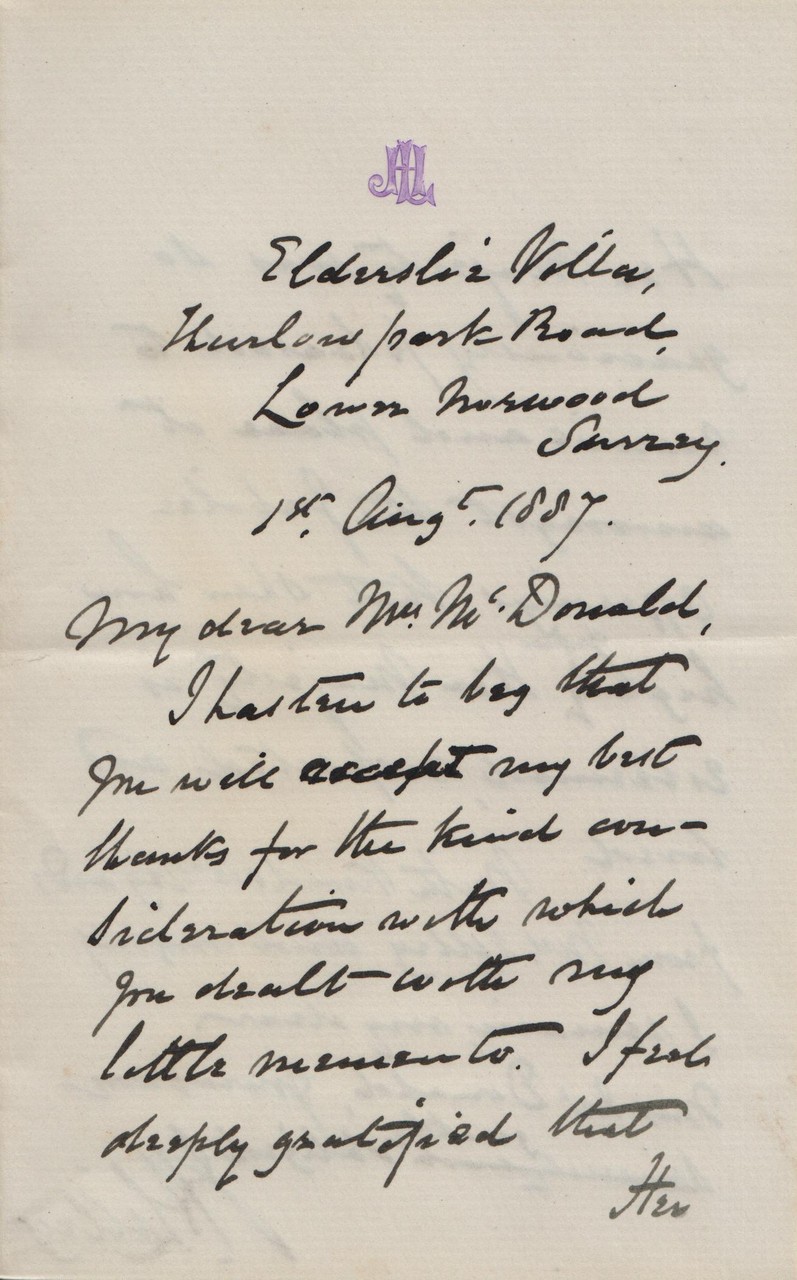 Elderslie Villa,
Thurlow park Road,
Lower Norwood
Surrey.
1st. Augt. 1887.
My dear Mrs. Mc.Donald,
I hasten to beg that
you will accept my best
thanks for the kind con-
sideration with which
you dealt with my
little memento. I feel
deeply gratified that
Her